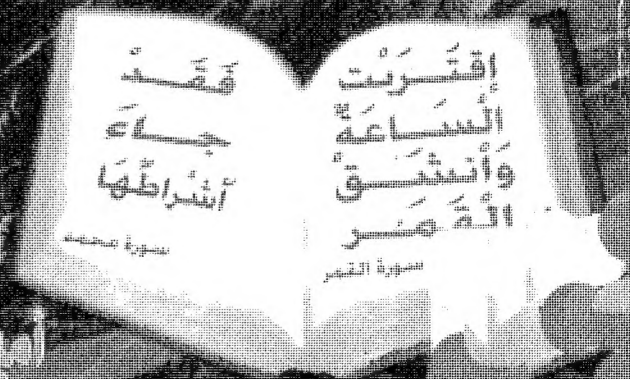 إقْتَـرَبَت
الْسَـاعَةُ
وَأنْشَـقَ
الْقَمَـر
سورة القمر
فَقَـدْ
جـاءَ
أشْراطُهَا
سورة محمد